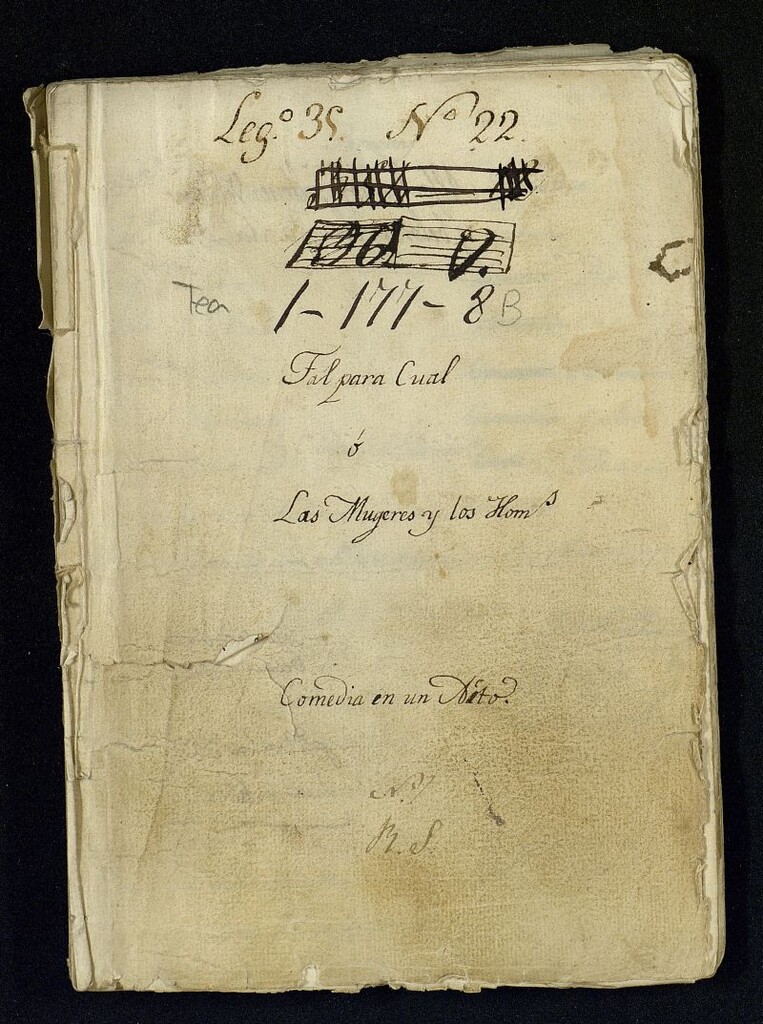 Leg.º 35. Nº 22.
Tea 1-177-8 B
Tal para Cual
ó
Las Mugeres y los Hom.s
Comedia en un Acto.
R. S.